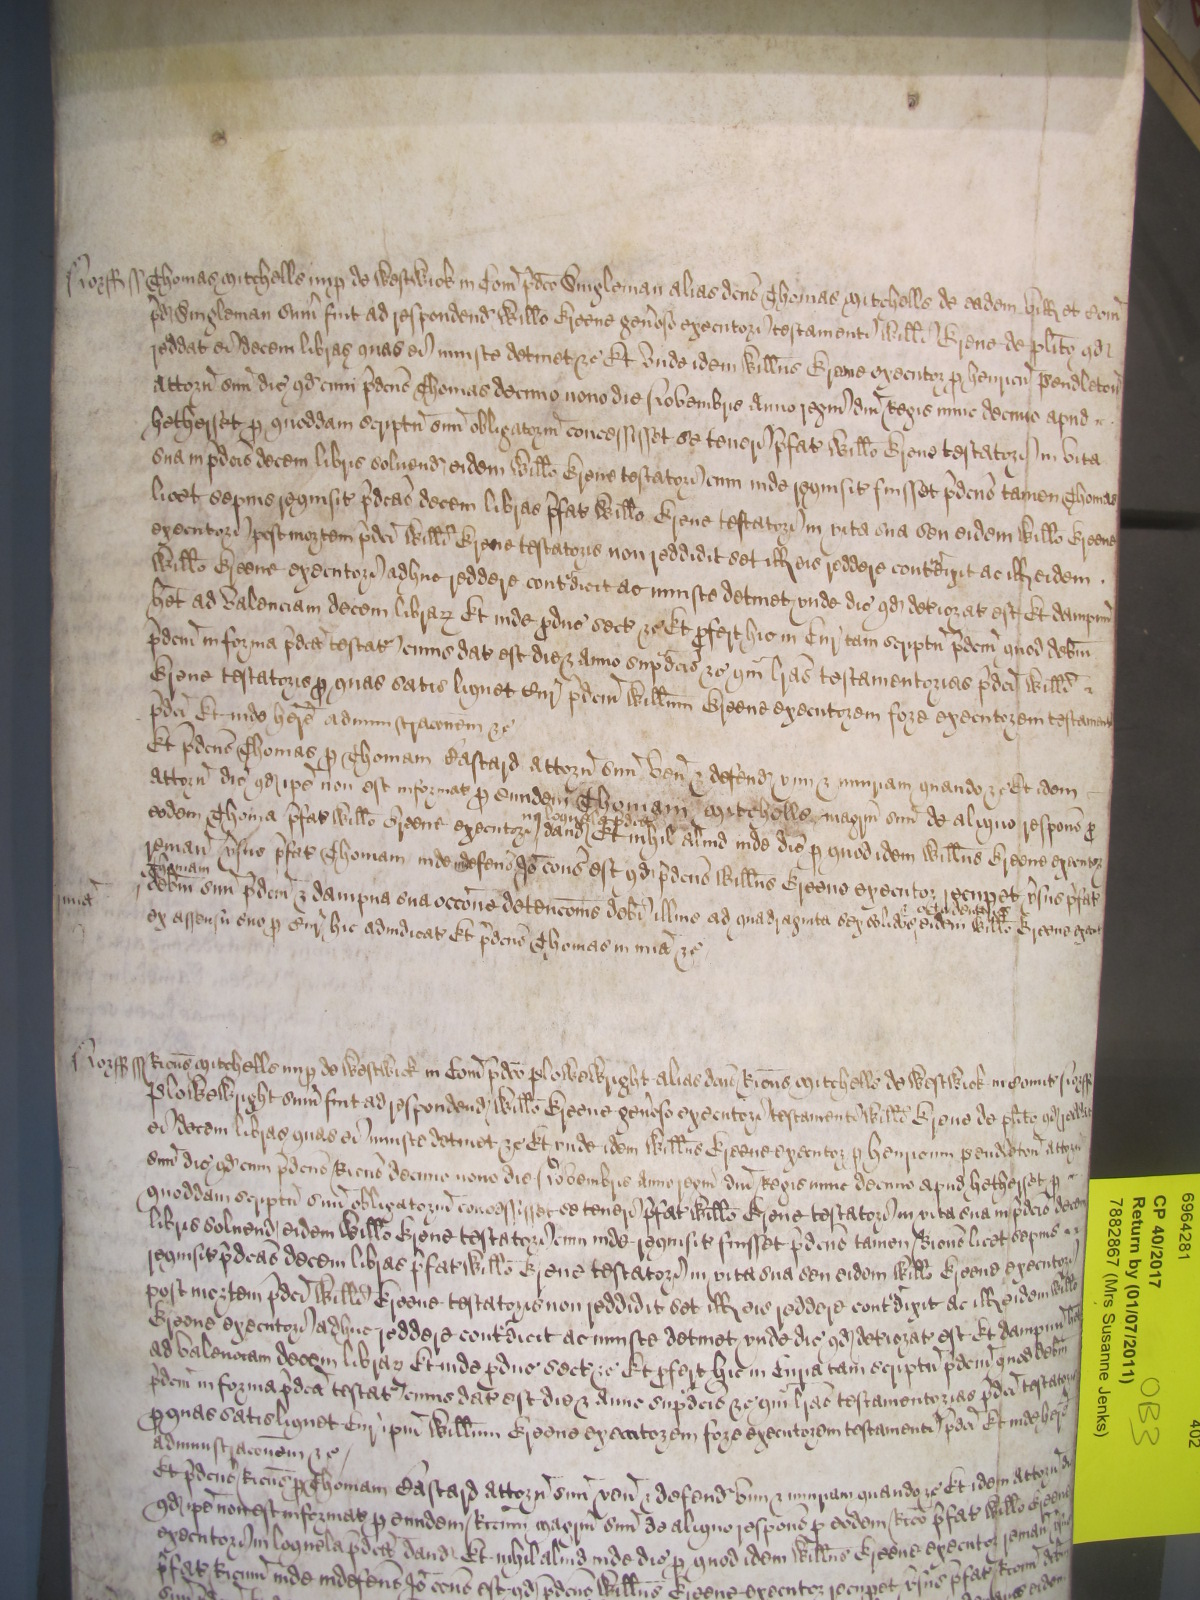 Norff ss Thomas Mitchells nup de Westwick in Com pdco Singleman alias dcus Thomas Mitchells de eadem vill et Com
pd Singleman sum fuit ad respondend Willo Grene genoso executori testamenti Willi Grene de plito qd
reddat ei decem libras quas ei iniuste detinet &c Et unde idem Willus Grene executor p Henricu Pendleton
attorn suu dic qd cum pdcus Thomas decimo nono die Novembris Anno regni dni Regis nunc decimo apud
Hetherset p quoddam scriptu suu obligatoriu concessisset se teneri pfat Willo Grene testatori in vita
sua in pdcis decem libris solvend eidem Willo Grene testatori cum inde requisit fuisset pdcus tamen Thomas
licet sepius requisit pdcas decem libras pfat Willo Grene testatori in vita sua seu eidem Willo Grene
executori post mortem pdci Willi Grene testatoris non reddidit set ill eis reddere contradixit ac ill eidem
Willo Grene executori adhuc reddere contradicit ac iniuste detinet unde dic qd deteriorat est Et dampnu
het ad valenciam decem librar Et inde pduc sect &c Et pfert hic in Cur tam scriptu pdcm quod debitu
pdcm in forma pdca testat cuius dat est die & anno supdcis &c qm lras testamentorias pdci Willi
Grene testatoris p quas satis liquet Cur pdcm Willum Grene executorem fore executorem testamenti
pdci Et inde here administraconem &c
Et pdcus Thomas p Thomam Bastard attorn suu ven & defend vim & iniuriam quando &c Et idem
attorn dic qd ipe non est informat p eundem Thomam Mitchells magrm suu de aliquo respons p
eodem Thoma pfat Willo Grene executori in loquela pdca dand Et nihil aliud inde dic p quod idem Willus Grene executor
reman vsus pfat Thomam inde indefens Io cons est qd pdcus Willus Grene executor recupet vsus pfat
Thomam
debitu suu pdcm & dampna sua occone detencois debi illius ad quadraginta sex solidos & octo denar eidem Willo Grene execut
mia
ex assensu suo p Cur hic adiudicat Et pdcus Thomas in mia &c
Norff ss Ricus Mitchells nup de Westwick in Com pdco Plowewright alias dcus Ricus Mitchells de Westwick in Comit Norff
Plowewright sum fuit ad respondend Willo Grene genoso executori testamenti Willi Grene de plito qd reddat
ei decem libras quas ei iniuste detinet &c Et unde idem Willus Grene executor p Henricum Pendleton attorn
suu dic qd cum pdcus Ricus decimo nono die Novembris anno regni dni Regis nunc decimo apud Hetherset p
quoddam scriptu suu obligatoriu concessisset se teneri pfat Willo Grene testatori in vita sua in pdcis decem
libris solvend eidem Willo Grene testatori cum inde requisit fuisset pdcus tamen Ricus licet sepius
requisit pdcas decem libras pfat Willo Grene testatori in vita sua seu eidem Willo Grene executori
post mortem pdci Willi Grene testatoris non reddidit set ill eis reddere contradixit ac ill eidem Willo
Grene executori adhuc reddere contradicit ac iniuste detinet unde dic qd deteriorat est Et dampnu het
ad valenciam decem librar Et inde pduc sect &c Et pfert hic in Curia tam scriptu pdcm quod debitu
pdcm in forma pdca testat cuius dat est die & anno supdcis &c qm lras testamentorias pdci testatoris
p quas satis liquet Cur ipm Willum Grene executorem fore executorem testamenti pdci Et inde here
administraconem &c
Et pdcus Ricus p Thomam Bastard attorn suu ven & defend vim & iniuriam quando &c Et idem attorn dic
qd ipe non est informat p eundem Ricum magrm suu de aliquo respons p eodem Rico pfat Willo Grene
executori in loquela pdca dand Et nihil aliud inde dic p quod idem Willus Grene executor reman vsus
pfat Ricum inde indefens Io cons est qd pdcus Willus Grene executor recupet vsus pfat Ricum debitu
6964281
CP 40/2017
Return by (01/07/2011)
7882867 (Mrs Susanne Jenks)
402
OB3